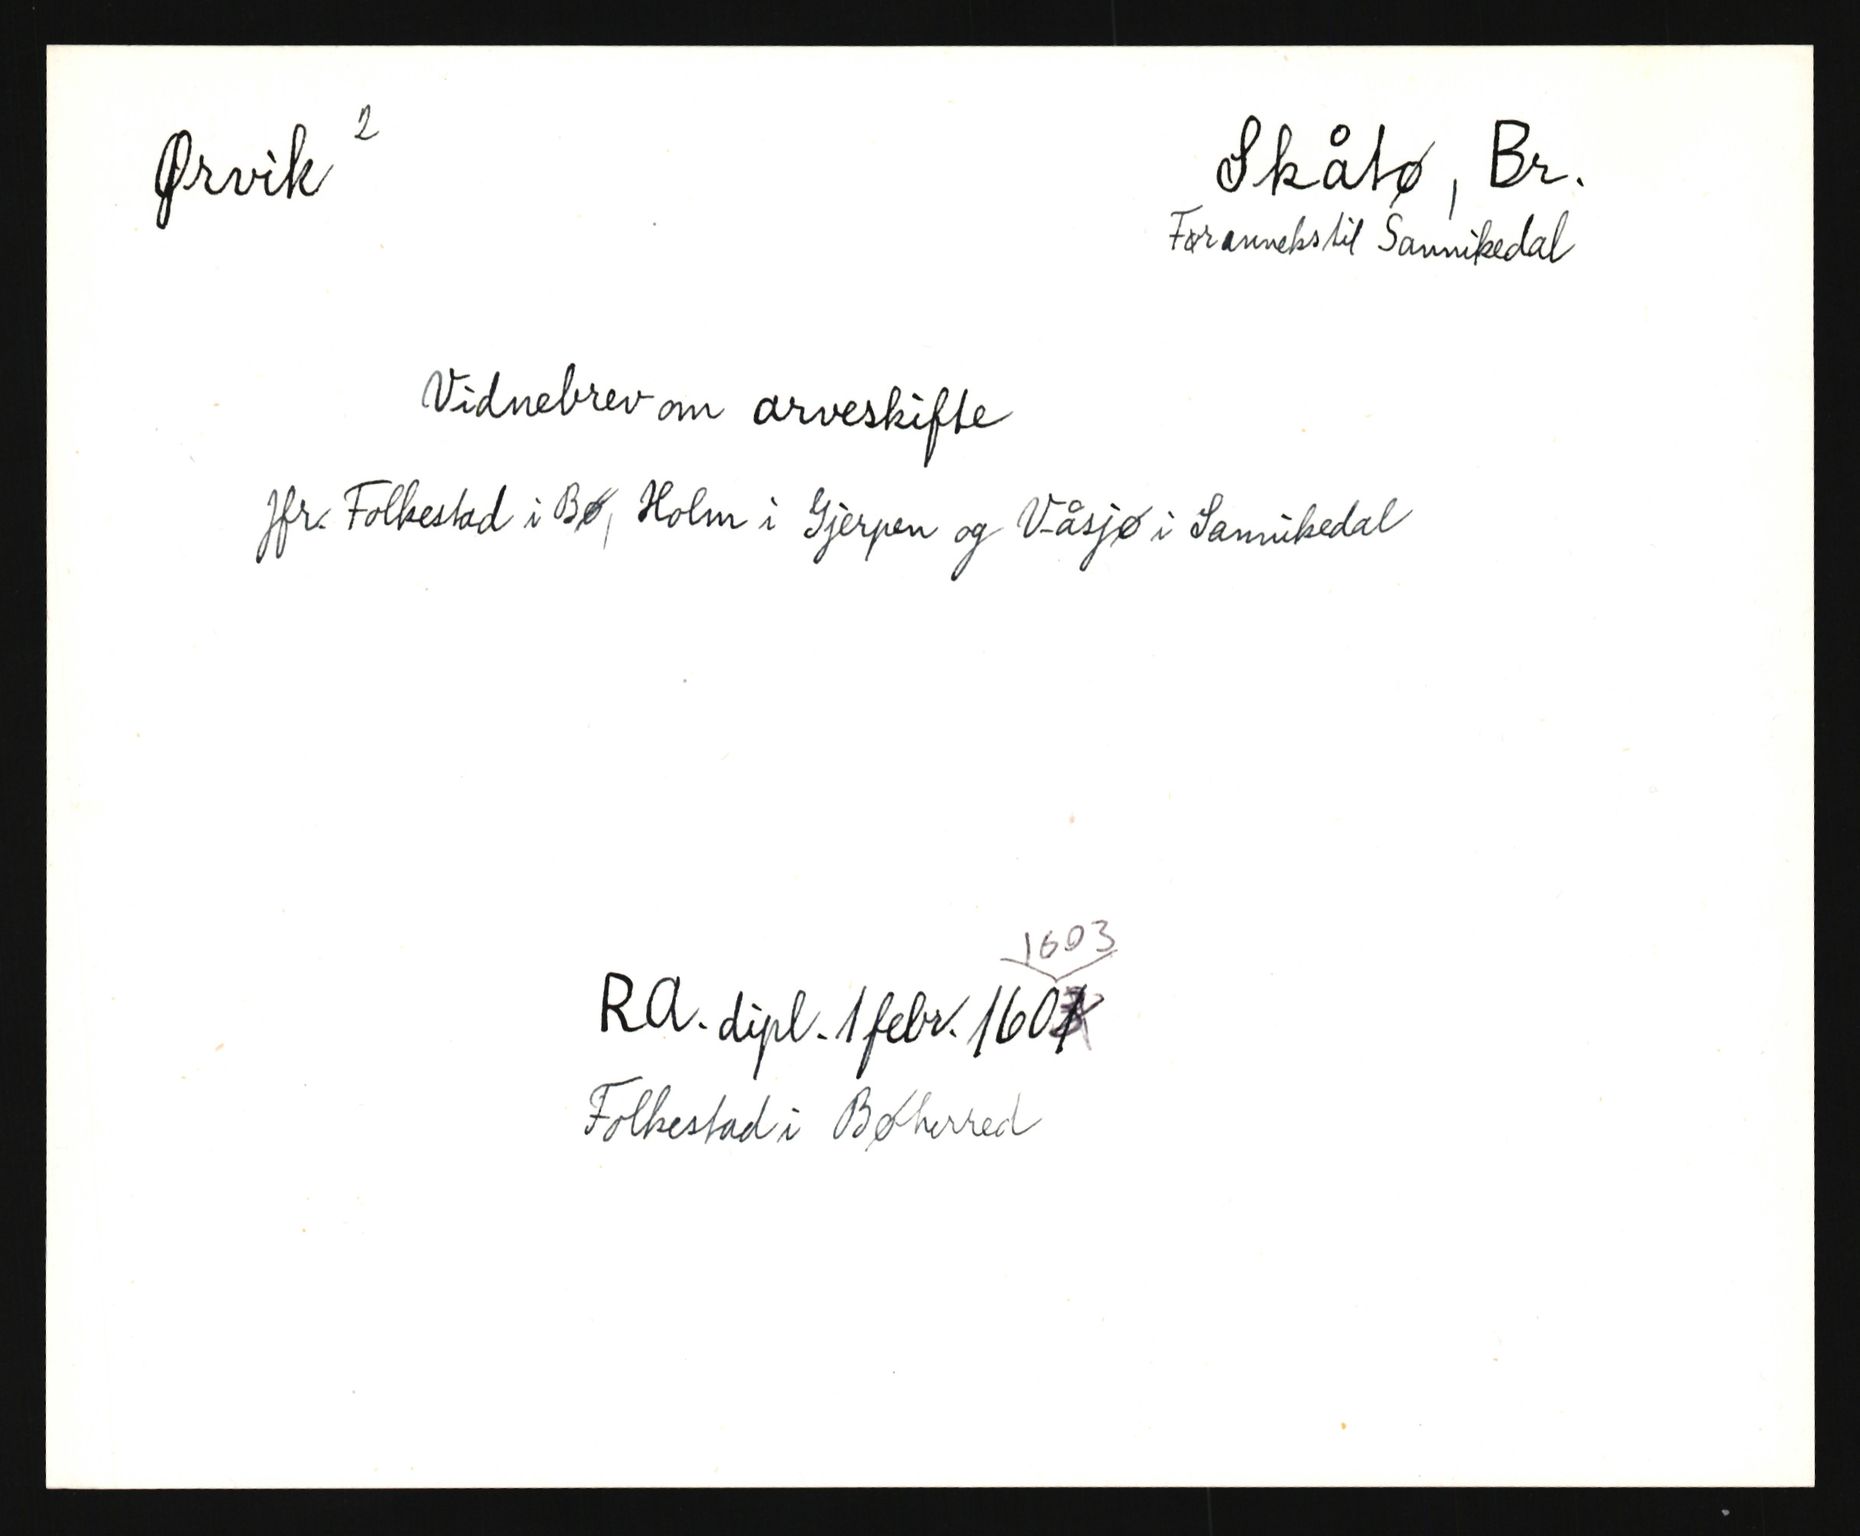 Ørvik 2
Skåtø, Br.
Før anneks til Sannikedal
Vidnebrev om arveskifte
Jfr. Folkestad i Bø, Holm i Gjerpen og Våsjø i Sannikedal
1603
RA. dipl. 1 febr. 160
Folkestad i Bøherred